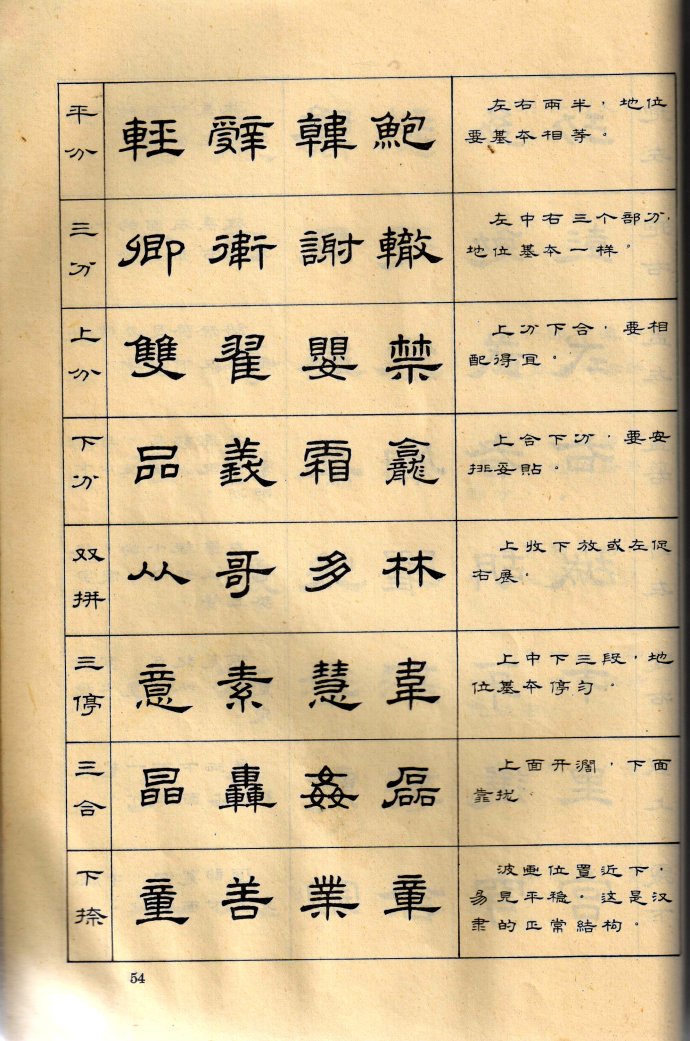 平分
輕 辭 韓 鮑
左右兩半，地位
要基本相等。
三分
卿 謝 轍
左中右三个部分，
地位基本一样。
上分
雙 翟 嬰 禁
上分下合，要相
配得宜。
下分
品 義 霜 龕
上合下分，要安
排妥貼。
双拼
从 哥 多 林
上收下放或左促
右展.
三停
意 素 慧 韋
上中下三段，地
位基本停匀。
三合
晶 轟 姦 磊
上面开濶，下面
靠拢.
下捺
童 善 業 章
波画位置近下，
易見平稳。这是汉
隶的正常結构。
54